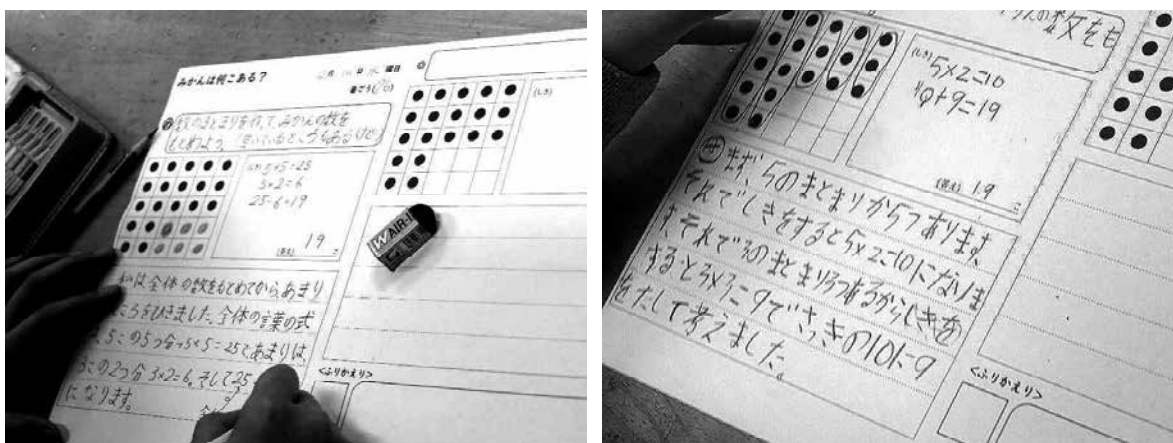 みかんは何こある?
曜日
数のまとまりを作って、みかんの数を
もとめよう。
5×5=25
3×2=6
25-6=19
(答え) 19 こ
(しき)
W AIR-I
私は全体の数をもとめてから、あまり
をひきました。全体の言葉の式
は、5この5つ分で5×5=25であまりは、
3この2つ分 3×2=6。そして25
になります。
<ふりかえり>
数をも
(しき) 5×2=10
10+9=19
(答え) 19 こ
サ まず、5のまとまりが2つあります。
それでしきをすると5×2=10になりま
す。それで3のまとまり3つあるからしきを
すると3×3=9でさっきの10に9
をたして考えました。
<ふりかえり>